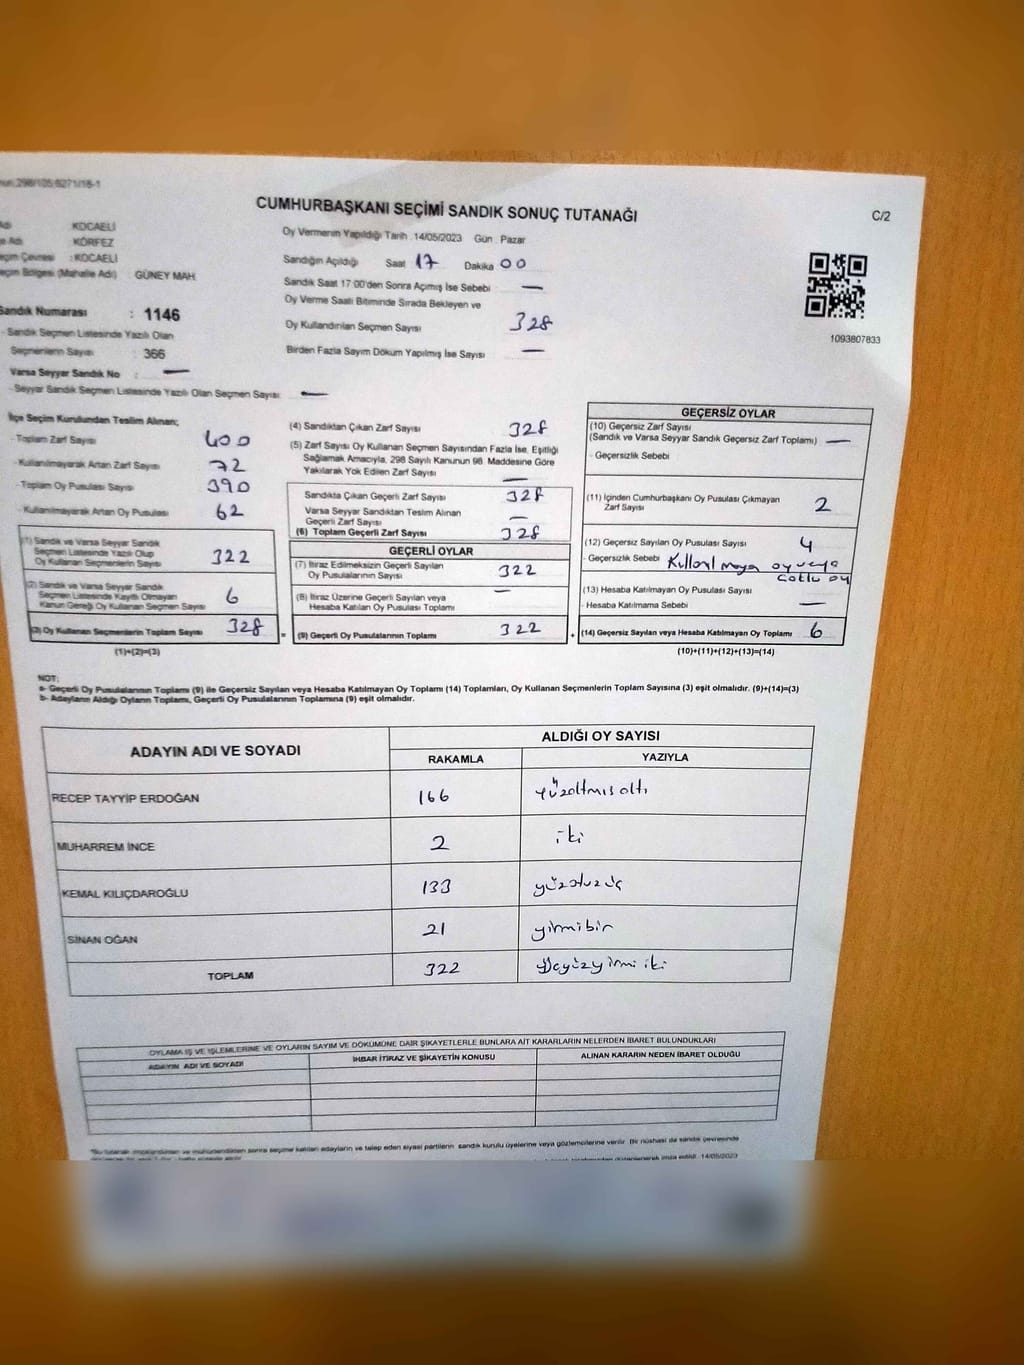 298/105;6271/18-1
CUMHURBAŞKANI SEÇİMİ SANDIK SONUÇ TUTANAĞI
C/2
KOCAELİ
KÖRFEZ
: KOCAELİ
(Mahalle Adı) : GÜNEY MAH.
Sandık Numarası : 1146
- Sandık Seçmen Listesinde Yazılı Olan
Seçmenlerin Sayısı : 366
Varsa Seyyar Sandık No : —
- Seyyar Sandık Seçmen Listesinde Yazılı Olan Seçmen Sayısı: —
Oy Vermenin Yapıldığı Tarih :14/05/2023 Gün : Pazar
Sandığın Açıldığı Saat 17 Dakika 00
Sandık Saat 17:00'den Sonra Açımış İse Sebebi : —
Oy Verme Saati Bitiminde Sırada Bekleyen ve
Oy Kullandırılan Seçmen Sayısı 328
Birden Fazla Sayım Döküm Yapılmış İse Sayısı —
1093807833
İlçe Seçim Kurulundan Teslim Alınan;
- Toplam Zarf Sayısı 600
- Kullanılmayarak Artan Zarf Sayısı 72
- Toplam Oy Pusulası Sayısı 390
- Kullanılmayarak Artan Oy Pusulası 62
(1) Sandık ve Varsa Seyyar Sandık
Seçmen Listesinde Yazılı Olup
Oy Kullanan Seçmenlerin Sayısı 322
(2) Sandık ve Varsa Seyyar Sandık
Seçmen Listesinde Kayıtlı Olmayan
Kanun Gereği Oy Kullanan Seçmen Sayısı 6
(3) Oy Kullanan Seçmenlerin Toplam Sayısı 328
(1)+(2)=(3)
(4) Sandıktan Çıkan Zarf Sayısı 328
(5) Zarf Sayısı Oy Kullanan Seçmen Sayısından Fazla İse, Eşitliği
Sağlamak Amacıyla, 298 Sayılı Kanunun 98. Maddesine Göre
Yakılarak Yok Edilen Zarf Sayısı —
Sandıkta Çıkan Geçerli Zarf Sayısı 328
Varsa Seyyar Sandıktan Teslim Alınan
Geçerli Zarf Sayısı —
(6) Toplam Geçerli Zarf Sayısı 328
GEÇERLİ OYLAR
(7) İtiraz Edilmeksizin Geçerli Sayılan
Oy Pusulalarının Sayısı 322
(8) İtiraz Üzerine Geçerli Sayılan veya
Hesaba Katılan Oy Pusulası Toplamı —
= (9) Geçerli Oy Pusulalarının Toplamı 322
GEÇERSİZ OYLAR
(10) Geçersiz Zarf Sayısı
(Sandık ve Varsa Seyyar Sandık Geçersiz Zarf Toplamı) —
- Geçersizlik Sebebi
(11) İçinden Cumhurbaşkanı Oy Pusulası Çıkmayan
Zarf Sayısı 2
(12) Geçersiz Sayılan Oy Pusulası Sayısı 4
- Geçersizlik Sebebi oy veya
oy
(13) Hesaba Katılmayan Oy Pusulası Sayısı
- Hesaba Katılmama Sebebi —
+ (14) Geçersiz Sayılan veya Hesaba Katılmayan Oy Toplamı 6
(10)+(11)+(12)+(13)=(14)
NOT:
a- Geçerli Oy Pusulalarının Toplamı (9) ile Geçersiz Sayılan veya Hesaba Katılmayan Oy Toplamı (14) Toplamları, Oy Kullanan Seçmenlerin Toplam Sayısına (3) eşit olmalıdır. (9)+(14)=(3)
b- Adayların Aldığı Oyların Toplamı, Geçerli Oy Pusulalarının Toplamına (9) eşit olmalıdır.
ADAYIN ADI VE SOYADI
ALDIĞI OY SAYISI
RAKAMLA YAZIYLA
RECEP TAYYİP ERDOĞAN 166 yüzaltmışaltı
MUHARREM İNCE 2 iki
KEMAL KILIÇDAROĞLU 133 yüzotuzüç
SİNAN OĞAN 21 yirmibir
TOPLAM 322 üçyüzyirmi iki
OYLAMA İŞ VE İŞLEMLERİNE VE OYLARIN SAYIM VE DÖKÜMÜNE DAİR ŞİKAYETLERLE BUNLARA AİT KARARLARIN NELERDEN İBARET BULUNDUKLARI
ADAYIN ADI VE SOYADI İHBAR İTİRAZ VE ŞİKAYETİN KONUSU ALINAN KARARIN NEDEN İBARET OLDUĞU
sonra seçime katılan adayların ve talep eden siyasi partilerin sandık kurulu üyelerine veya gözlemcilerine verilir. Bir nüshası da sandık çevresinde
14/05/2023